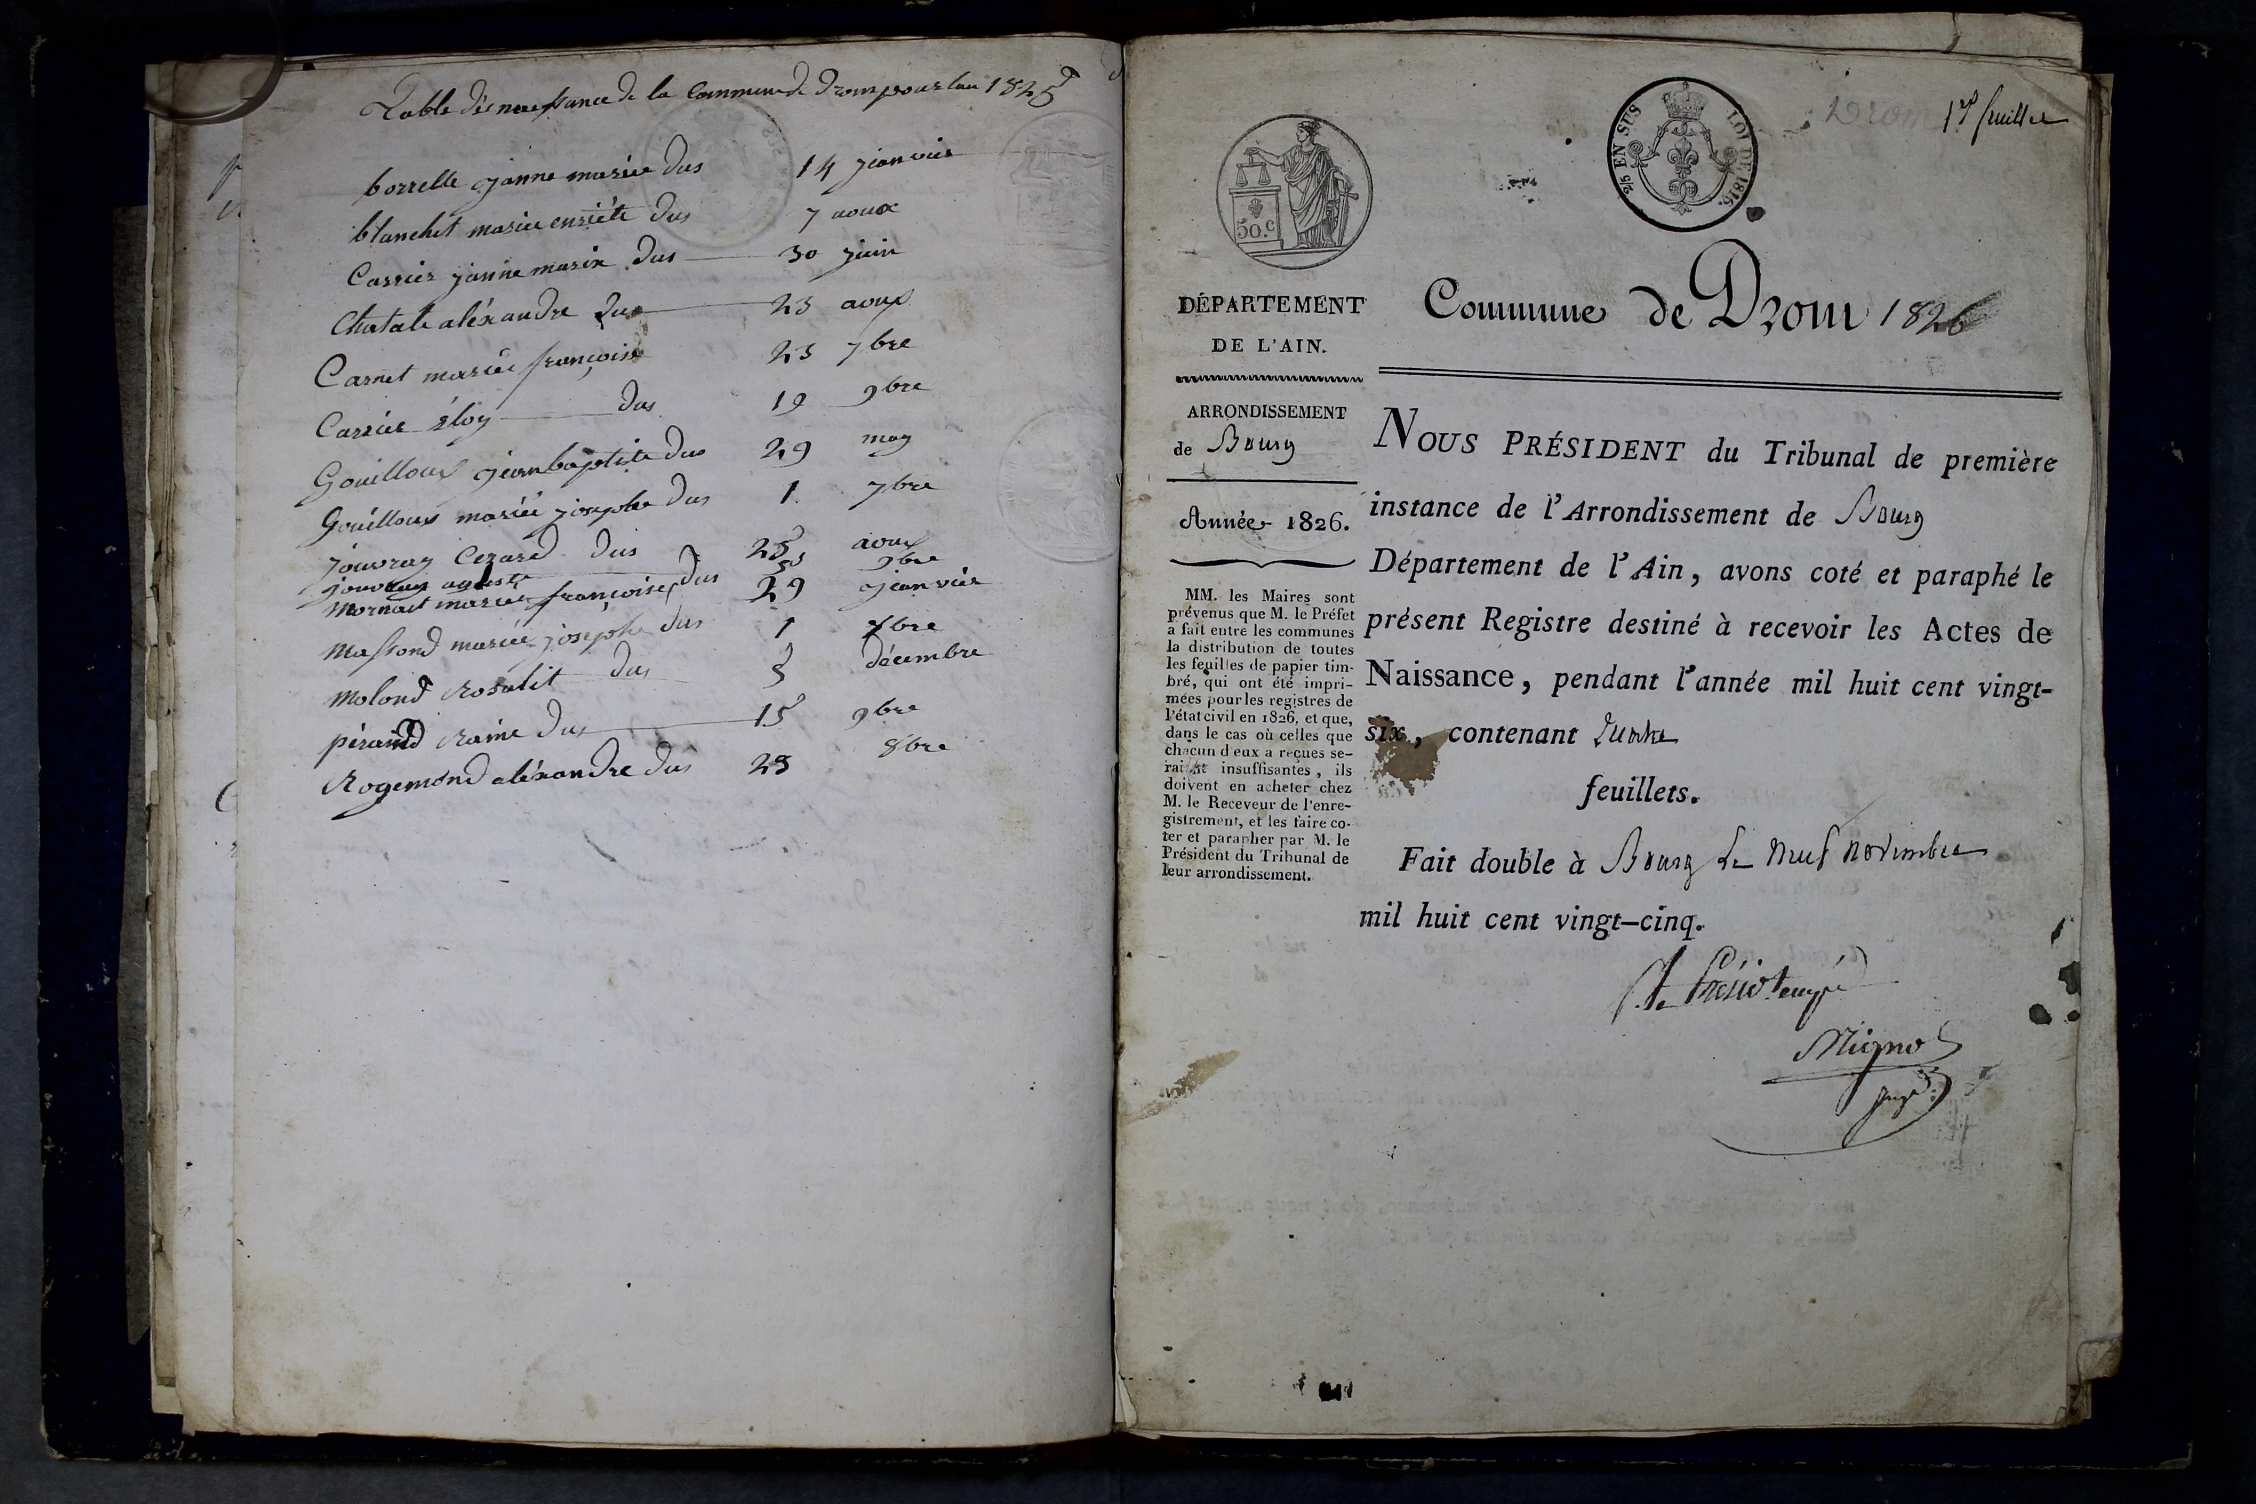 Table des naissance de la Commune de Drom pour l'an 1825
borrelle jânne marie dus 14 jianvier
blanchet marie enriéte dus 7 aoux
Carrier jânne marie dus 30 juin
Chatale aléxandre dus 23 aoux
Carnet mariée françoise 23 7bre
Carriér éloy dus 19 9bre
Gouilloux jeanbaptiste dus 29 may
Gouilloux mariée josephe dus 1 7bre
jouvray Cezard dus 25 aoux
jouvray 9bre
Mornait mariée françoise dus 29 jeanvier
Massond mariée josephe dus 1 bre
Molond Rosalit dus 3 décembre
péraud Raine dus 15 9bre
Rogemond aléxandre dus 28 8bre
1er feuillet
2/5 EN SUS LOI DE 1816.
50.C
DÉPARTEMENT
DE L'AIN.
Commune de Drom 1826
ARRONDISSEMENT
de Bourg
Année 1826.
MM. les Maires sont
prévenus que M. le Préfet
a fait entre les communes
la distribution de toutes
les feuilles de papier tim-
bré, qui ont été impri-
mées pour les registres de
l'état civil en 1826, et que,
dans le cas où celles que
chacun d'eux a reçues se-
raient insuffisantes, ils
doivent en acheter chez
M. le Receveur de l'enre-
gistrement, et les faire co-
ter et parapher par M. le
Président du Tribunal de
leur arrondissement.
NOUS PRÉSIDENT du Tribunal de première
instance de l'Arrondissement de Bourg
Département de l'Ain, avons coté et paraphé le
présent Registre destiné à recevoir les Actes de
Naissance, pendant l'année mil huit cent vingt-
six, contenant
feuillets.
Fait double à Bourg le neuf novembre
mil huit cent vingt-cinq.
Mignot
juge